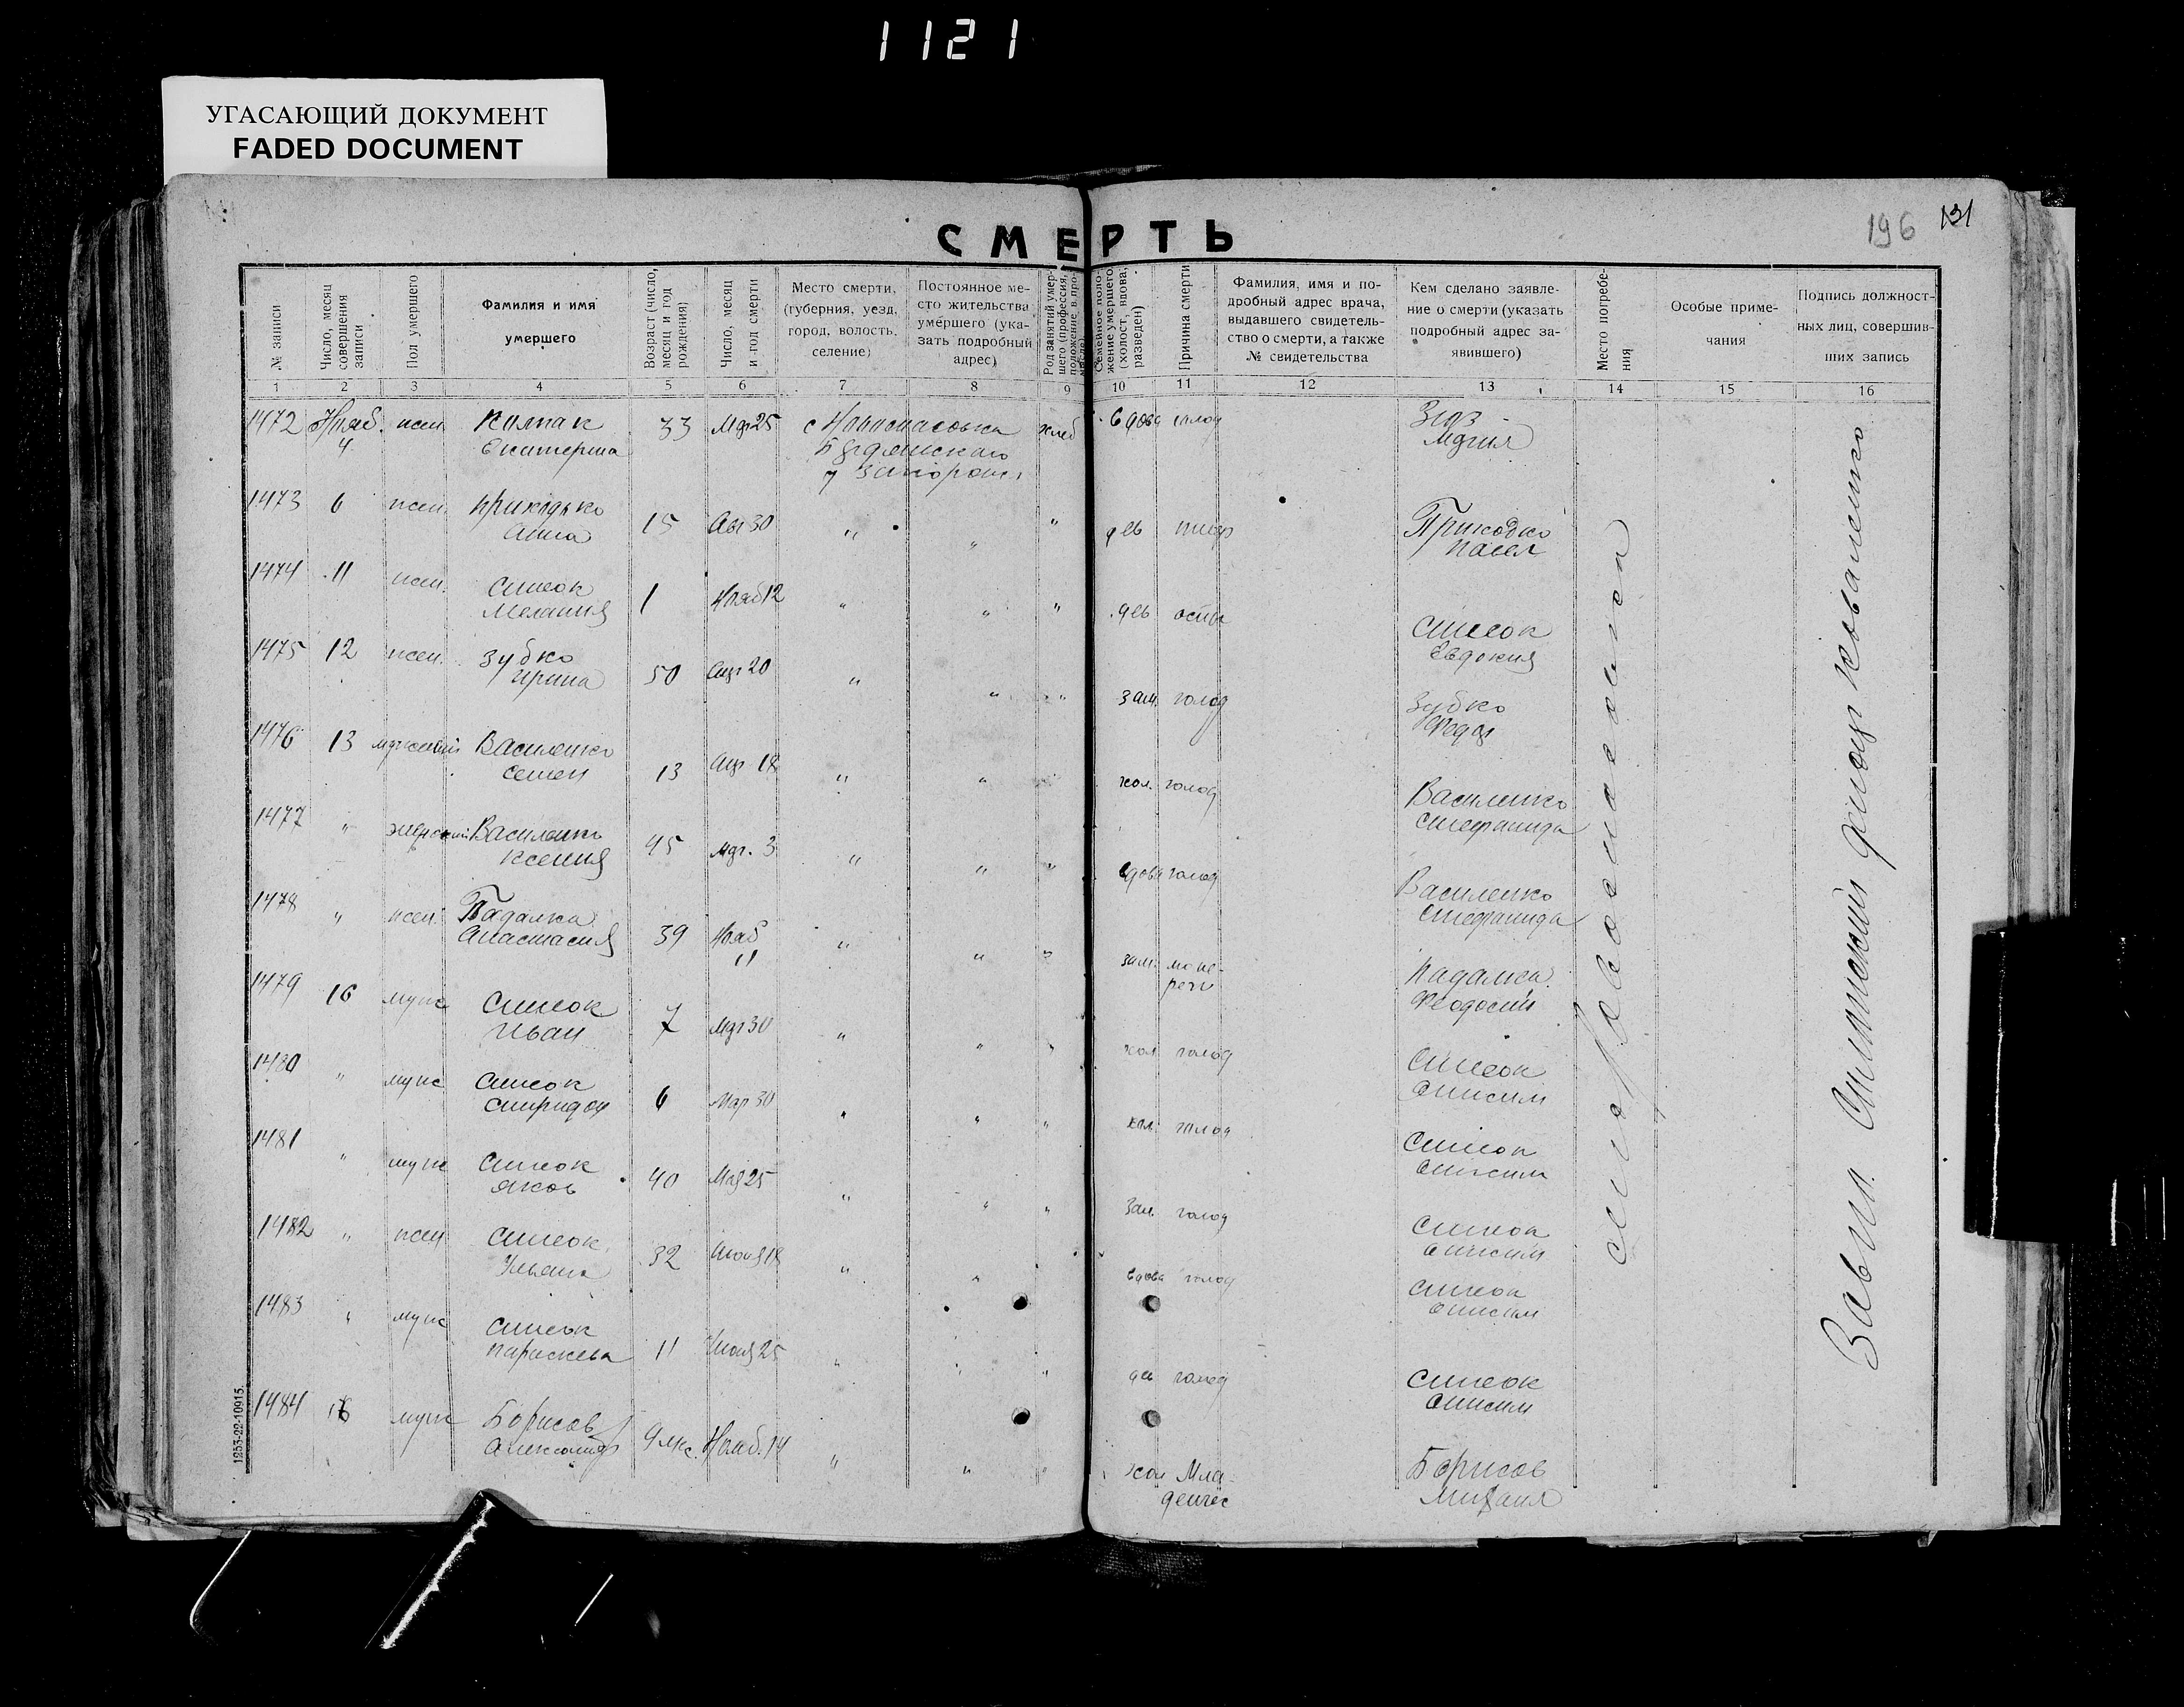 1121
УГАСАЮЩИЙ ДОКУМЕНТ
FADED DOCUMENT
196 131
СМЕРТЬ
№ записи
Число, месяц совершения записи
Пол умершего
Фамилия и имя умершего
Возраст (число, месяц и год рождения)
Число, месяц и год смерти
Место смерти, (губерния, уезд, город, волость, селение)
Постоянное место жительства умершего (указать подробный адрес)
Род занятий умершего (профессия, положение в промысле)
Семейное положение умершего (холост, вдова, разведен)
Причина смерти
Фамилия, имя и подробный адрес врача, выдавшего свидетельство о смерти, а также № свидетельства
Кем сделано заявление о смерти (указать подробный адрес заявившего)
Место погребения
Особые примечания
Подпись должностных лиц, совершивших запись
1 2 3 4 5 6 7 8 9 10 11 12 13 14 15 16
1472 Нояб. 4 жен Колпак Екатерина 33 25 с Запорож. хлеб вдова голод
1473 6 жен. Приходько Анна 15 Авг 30 " " " дев Приходко Павел
1474 11 жен. Синеок Мелания 1 Нояб 12 " " " дев оспа Синеок Евдокия
1475 12 жен. Зубко Ирина 50 20 " " " зам. голод Зубко Федор
1476 13 мужской Василенко Семен 13 18 " " " хол. голод Василенко Степанида
1477 " женский Василенко Ксения 45 3 " " " вдова голод Василенко Степанида
1478 " жен. Падалка Анастасия 39 Нояб 11 " " " зам. Падалка Феодосий
1479 16 муж Синеок Иван 7 30 " " " хол голод Синеок Онисим
1480 " муж Синеок Спиридон 6 Мар 30 " " " хол. голод Синеок Онисим
1481 " муж Синеок Яков 40 Мая 25 " " " зам голод Синеок Онисим
1482 " жен Синеок Ульяна 32 18 " " " вдова голод Синеок Онисим
1483 " муж Синеок Параскева 11 Июня 25 " " " дев голод Синеок Онисим
1484 16 муж Борисов Александр 9 мес. Нояб. 14 " " " хол Младенчес Борисов Михаил
Коваленко
1253-22-10915.